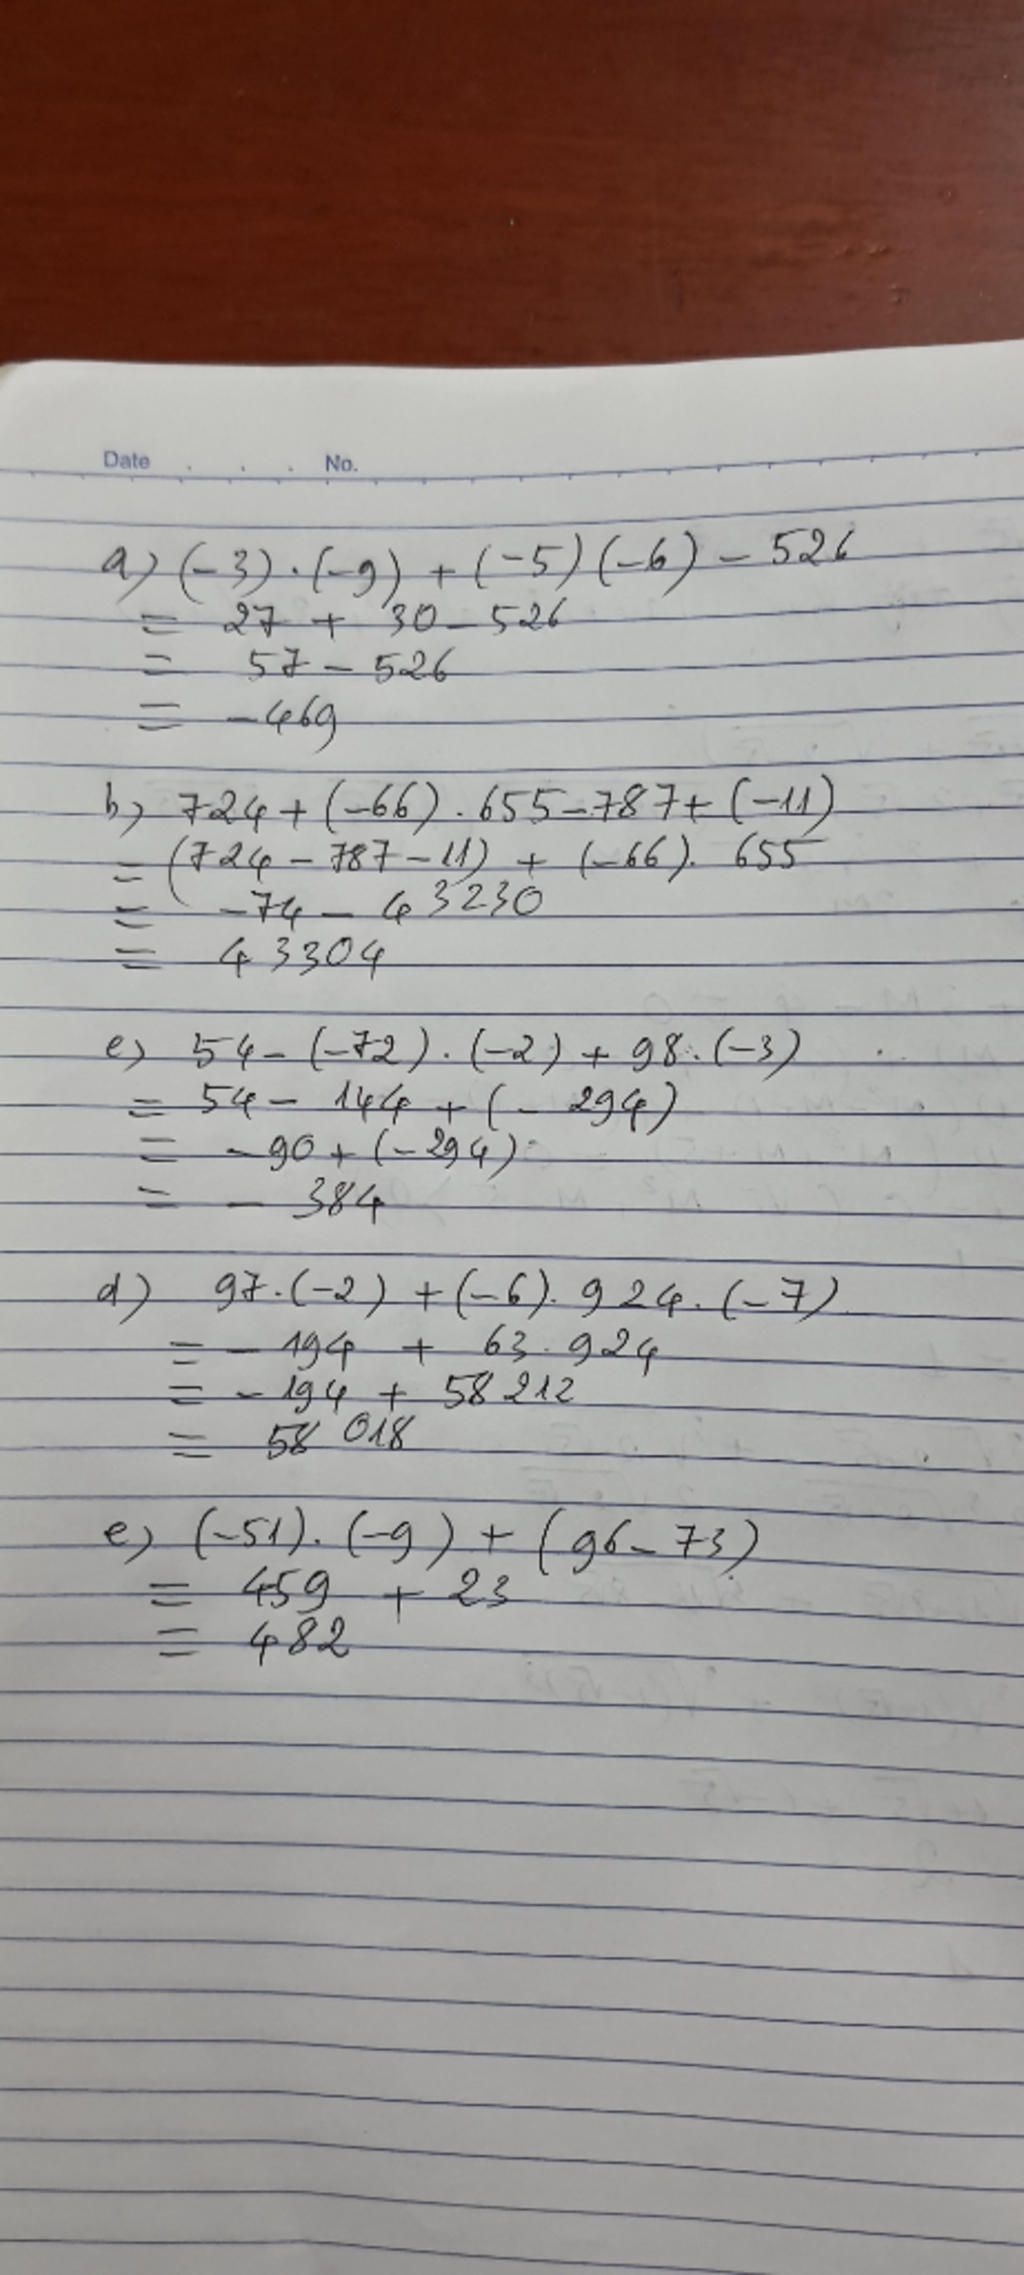 Date . . . No.
a) (-3).(-9) + (-5)(-6) - 526
= 27 + 30 - 526
= 57 - 526
= -469
b) 724 + (-66) . 655 - 787 + (-11)
= (724 - 787 - 11) + (-66). 655
= -74 - 43230
= 43304
c) 54 - (-72) . (-2) + 98 . (-3)
= 54 - 144 + (-294)
= -90 + (-294)
= - 384
d) 97.(-2) + (-6). 924. (-7)
= - 194 + 63. 924
= - 194 + 58212
= 58 018
e) (-51). (-9) + (96 - 73)
= 459 + 23
= 482